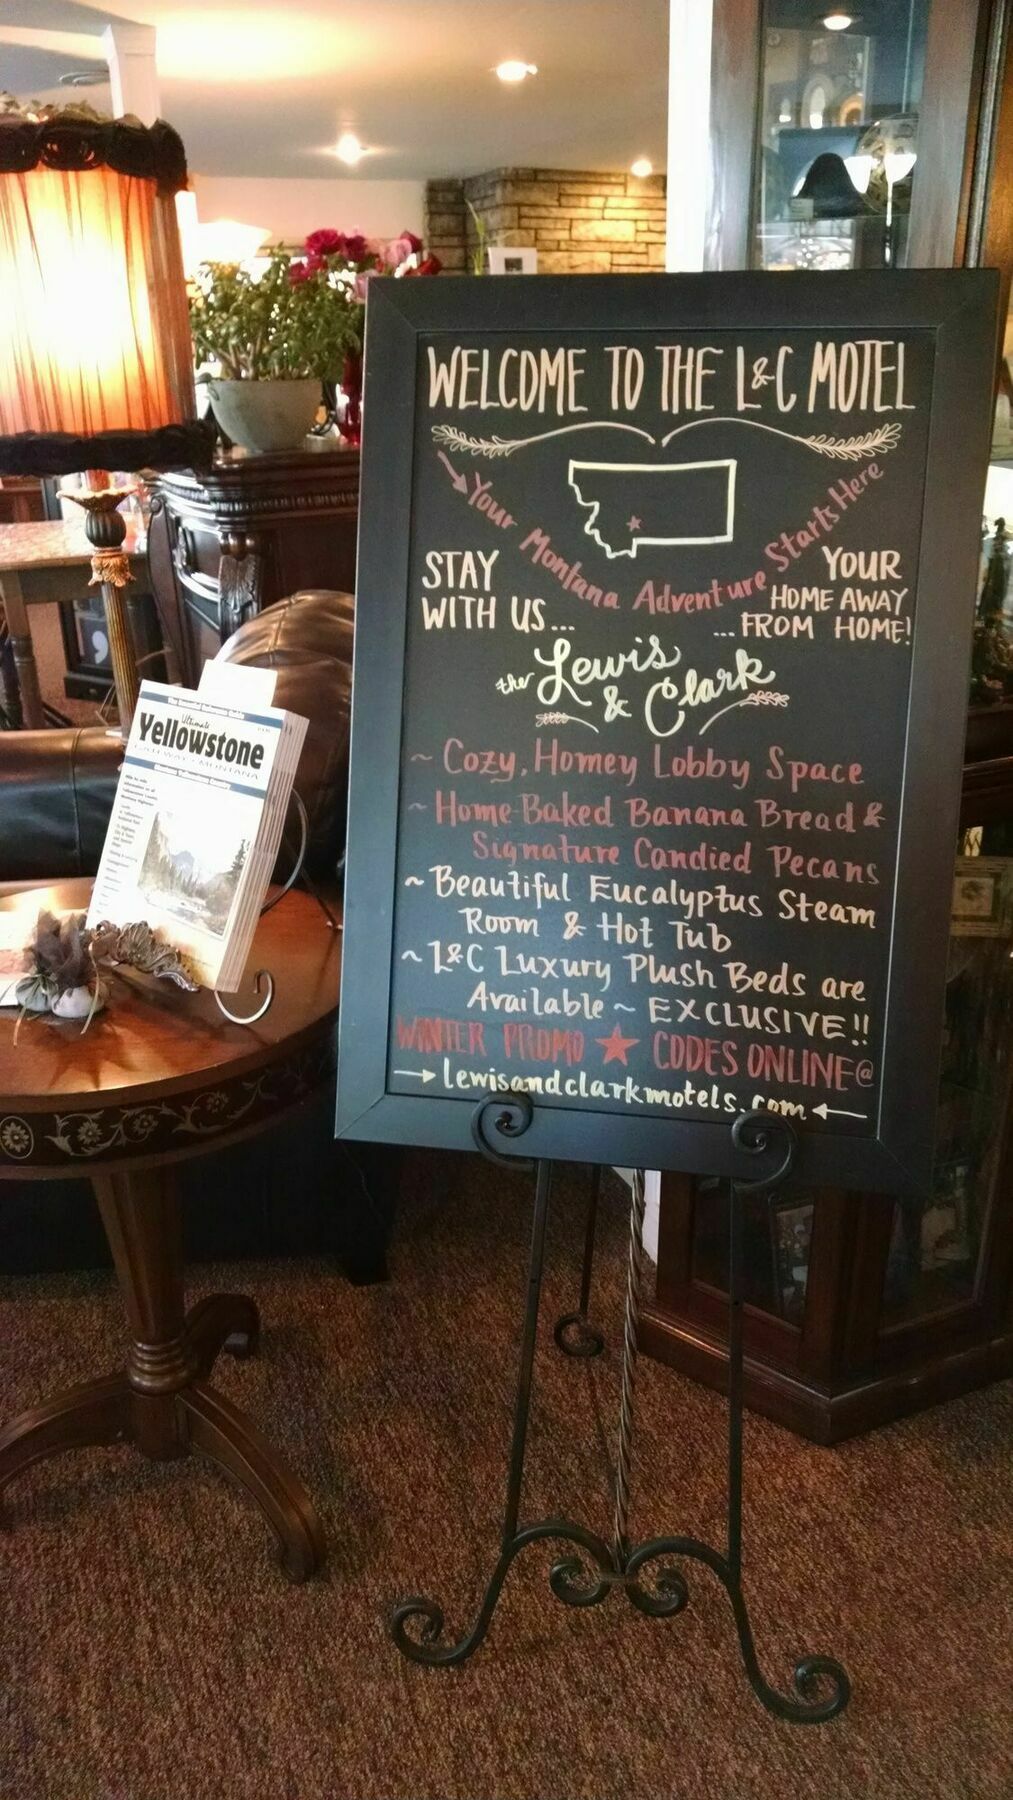 WELCOME TO THE L&C MOTEL
Your Montana Adventure Starts Here
STAY
WITH US...
YOUR
HOME AWAY
...FROM HOME!
the Lewis
& Clark
~ Cozy, Homey Lobby Space
~ Home-Baked Banana Bread &
Signature Candied Pecans
~ Beautiful Eucalyptus Steam
Room & Hot Tub
~ L&C Luxury Plush Beds are
Available ~ EXCLUSIVE!!
WINTER PROMO ★ CODES ONLINE @
→ lewisandclarkmotels.com ←
Ultimate
Yellowstone